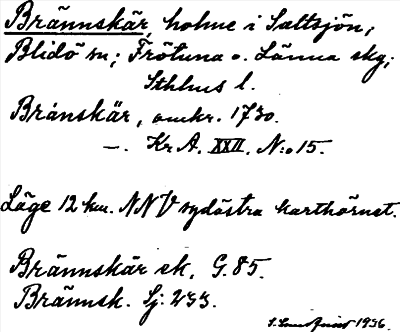 Brännskär, holme i Saltsjön,
Blidö sn; Frötuna o. Länna skg;
Sthlms l.
Brånskär, omkr. 1730.
—. Kr A. XXII. N:o 15.
Läge 12 km. NNV sydöstra karthörnet.
Brännskär ek. G. 85.
Brännsk. Sj: 233.
1936.